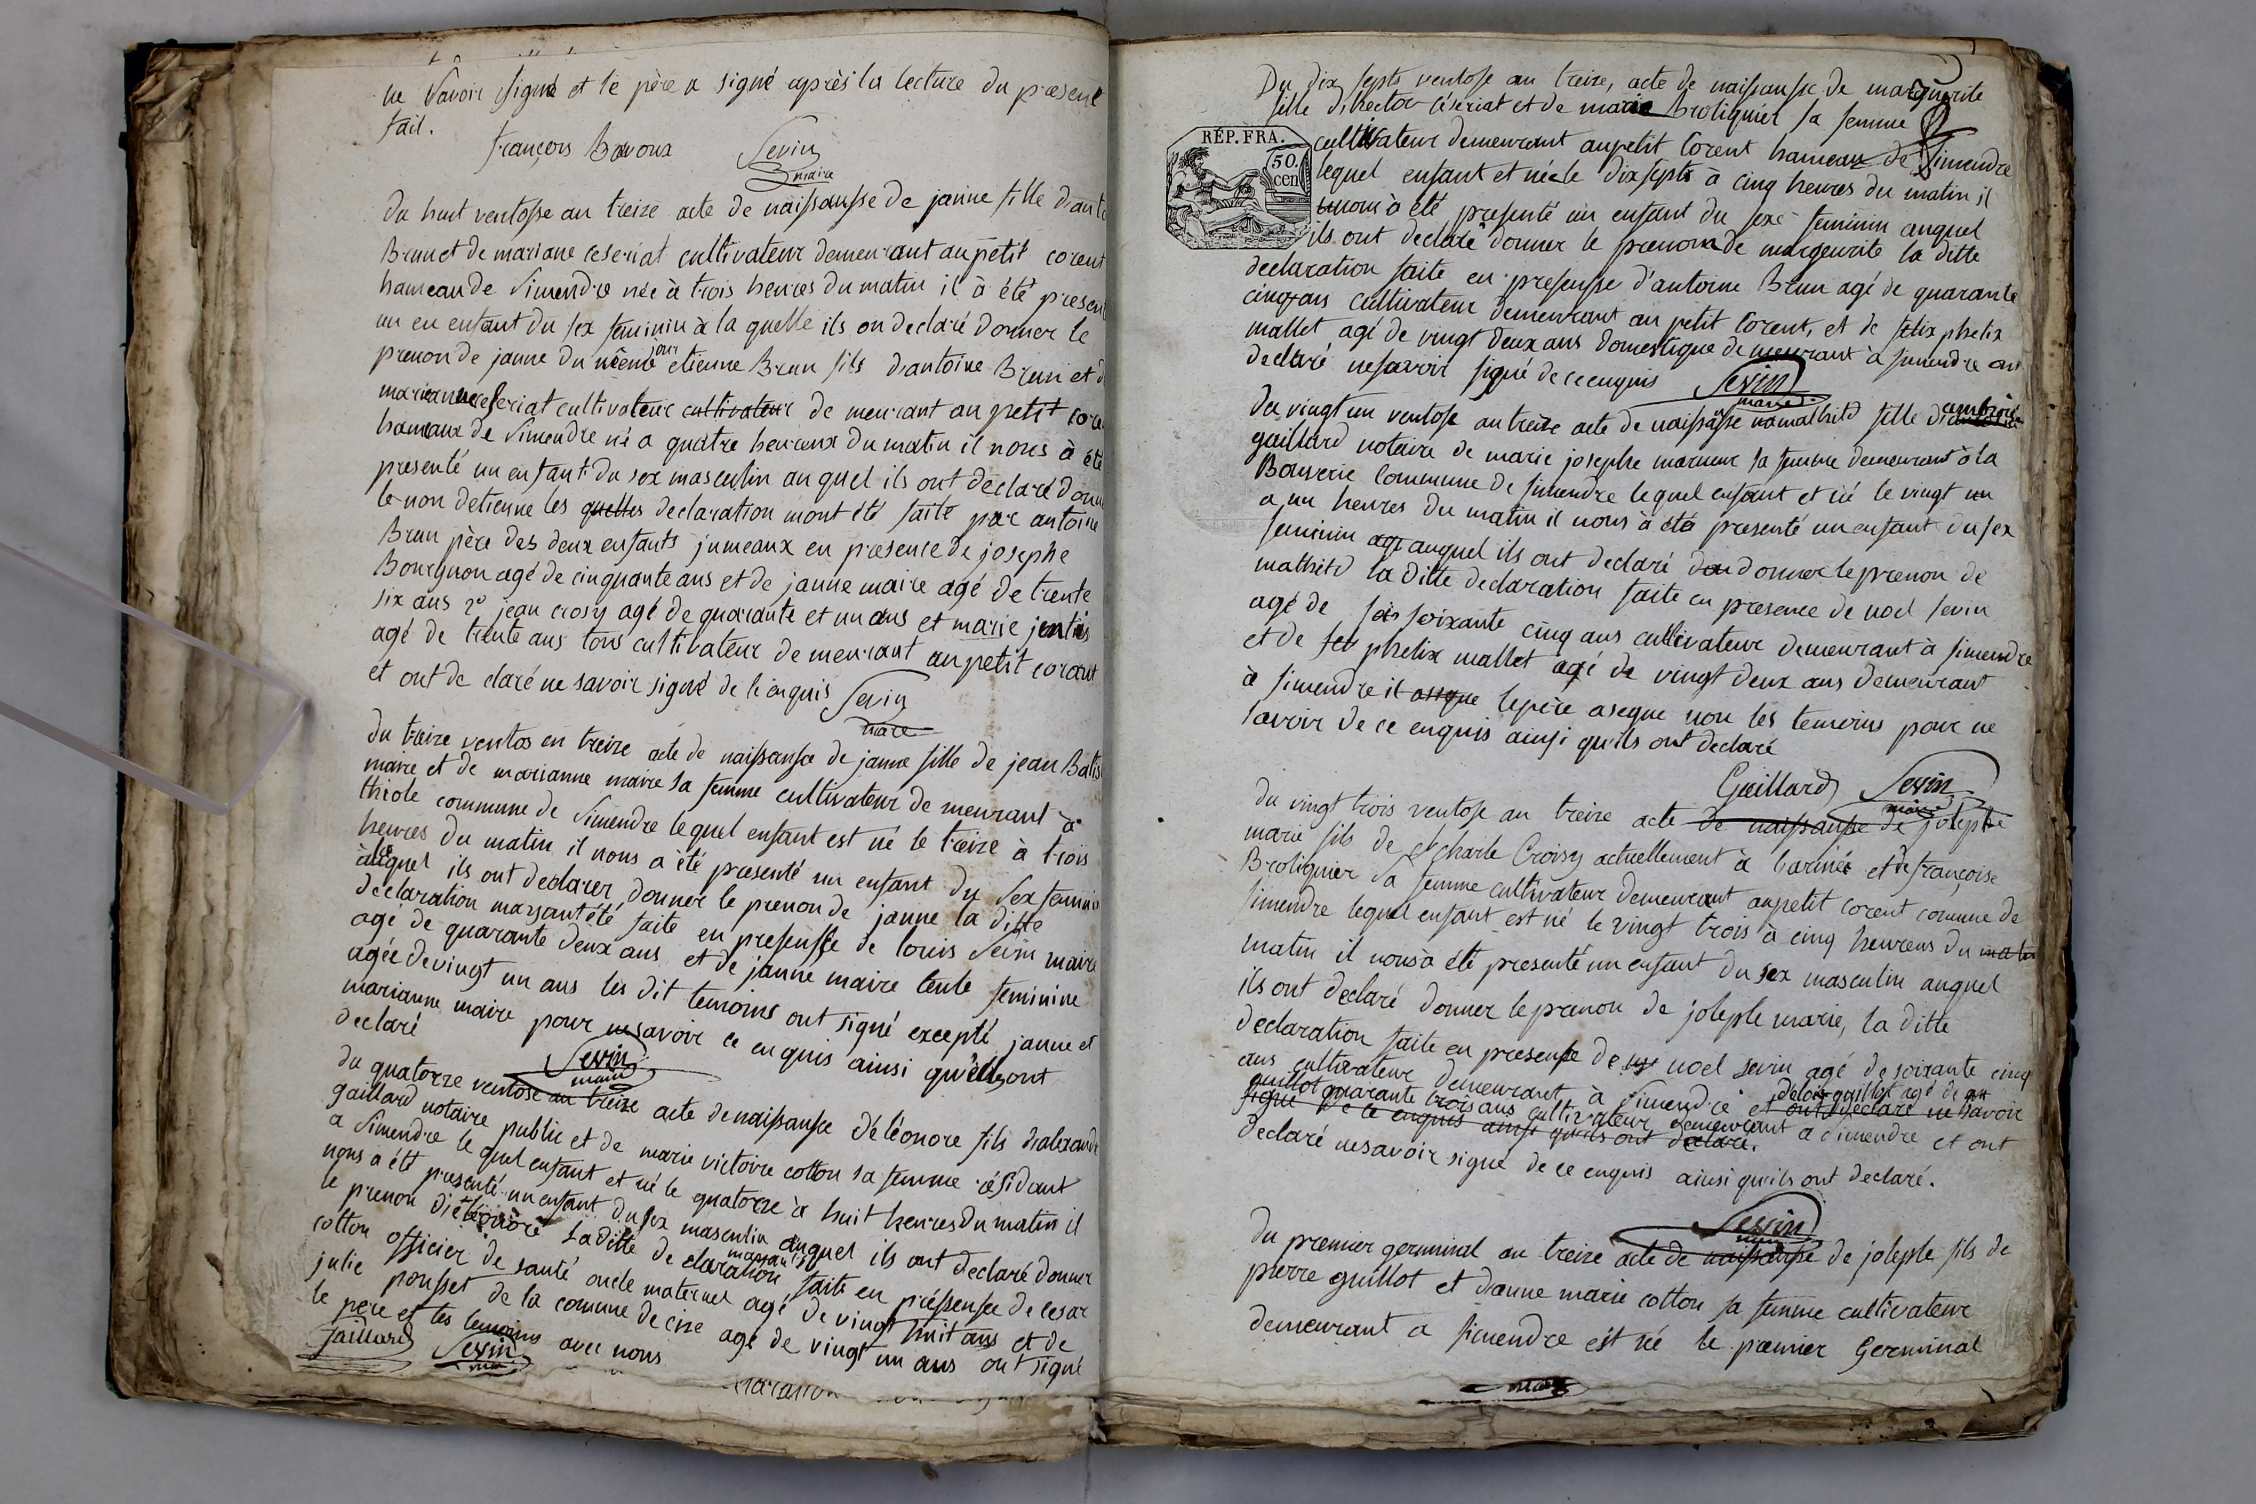 ne savoir signé et le père a signé après la lecture du present
fait.
françois Bavoux Sevin
maire
du huit ventosse an treize acte de naissansse de janne fille d'anto
Brun et de mariane ceseriat cultivateur demeurant au petit corent
hameau de Simendre née à trois heures du matin il à été present
un en enfant du sex feminin à la quelle ils on declaré donner le
prenon de janne du même jour etienne Brun fils d'antoine Brun et d
marianne ceseriat cultivateur cultivateur de meurant au petit core
hameaux de Simendre né a quatre heureux du matin il nous à été
presenté un enfant du sex masculin auquel ils ont déclaré donn
le non detienne les quelles declaration mont été faite par antoine
Brun père des deux enfants jumeaux en presence de josephe
Bourgnon agé de cinquante ans et de janne maire agé de trente
six ans 2º jean crosy agé de quarante et un ans et marie
agé de trente ans tous cultivateur de meurant au petit corant
et ont de claré ne savoir signé de enquis Sevin
maire
du treize ventos en treize acte de naissansse de janne fille de jean Batis
maire et de marianne maire sa femme cultivateur de meurant à
thiole commune de Simendre le quel enfant est né le treize à trois
heures du matin il nous a été presenté un enfant du Sex feminin
auquel ils ont declarer donner le prenon de janne la ditte
declaration mayant été faite en presensse de louis Sevin maire
agé de quarante deux ans et de janne maire tente feminine
agée de vingt un ans les dit temoins ont signé excepté janne et
marianne maire pour ne savoir ce enquis ainsi qu'elles ont
declaré Sevin
maire
du quatorze ventose an treize acte de naissansse d'éléonore fils d'alexandre
gaillard notaire public et de marie victoire cotton sa femme résidant
a Simendre le quel enfant et né le quatorze à huit heures du matin il
nous a été presenté un enfant du sex masculin auquel ils ont declaré donner
le prenon d'éléonore la ditte de claration mayant faite en pressensse de cesar
cotton officier de santé oncle maternel agé de vingt huit ans et de
julie pousset de la comune de cize agé de vingt un ans ont signé
le pere et les temoins avec nous
Gaillard Sevin
Du dix septs ventose an treize, acte de naissansse de marguerite
fille d'hector céseriat et de marie Broliquier sa femme
RÉP. FRA.
50.
cen
cultivateur demeurant aupetit Corent hameau de Simendre
lequel enfant et née le dix septs à cinq heures du matin il
à été presenté un enfant du sexe feminin auquel
ils ont declaré donner le prenom de margeurite la ditte
declaration faite en presensse d'antoine Brun agé de quarante
cinq ans cultivateur demeurant au petit Corent, et de félix phelix
mallet agé de vingt deux ans domestique demeurant à simendre ont
declaré ne savoir signé de ce enquis Sevin
maire
du vingt un ventose an treize acte de naissansse mathild fille d'ambroise
gaillard notaire de marie josephe sa femme demeurant à la
Bouverie Commune de simendre lequel enfant et né le vingt un
a un heures du matin il nous à été presenté un enfant du sex
feminin auquel ils ont declaré donner le prenon de
mathild la ditte declaration faite en presence de noel sevin
agé de soixante cinq ans cultivateur demeurant à simendre
et de phelix mallet agé de vingt deux ans demeurant
à simendre il lepère non les temoins pour ne
savoir de ce enquis ainsi qu'ils ont declaré
Gaillard Sevin
maire
du vingt trois ventose an treize acte de naissansse de josephe
marie fils de charle Croisy actuellement à larmée et de françoise
Broliquier sa femme cultivateur demeurant aupetit corent comune de
simendre lequel enfant est né le vingt trois à cinq heureus du matin
matin il nous à été presenté un enfant du sex masculin auquel
ils ont declaré donner le prenon de josephe marie, la ditte
declaration faite en presensse de noel sevin agé de soixante cinq
ans cultivateur demeurant à Simendre et ont declaré ne savoir
guillot quarante trois ans cultivateur demeurant a simendre et ont
signé de ce enquis ainsi qu'ils ont declaré.
declaré nesavoir signé de ce enquis ainsi qu'ils ont declaré.
Sevin
maire
du premier germinal an treize acte de naissansse de josephe fils de
pierre guillot et d'anne marie cotton sa femme cultivateur
demeurant a simendre est né le premier Germinal